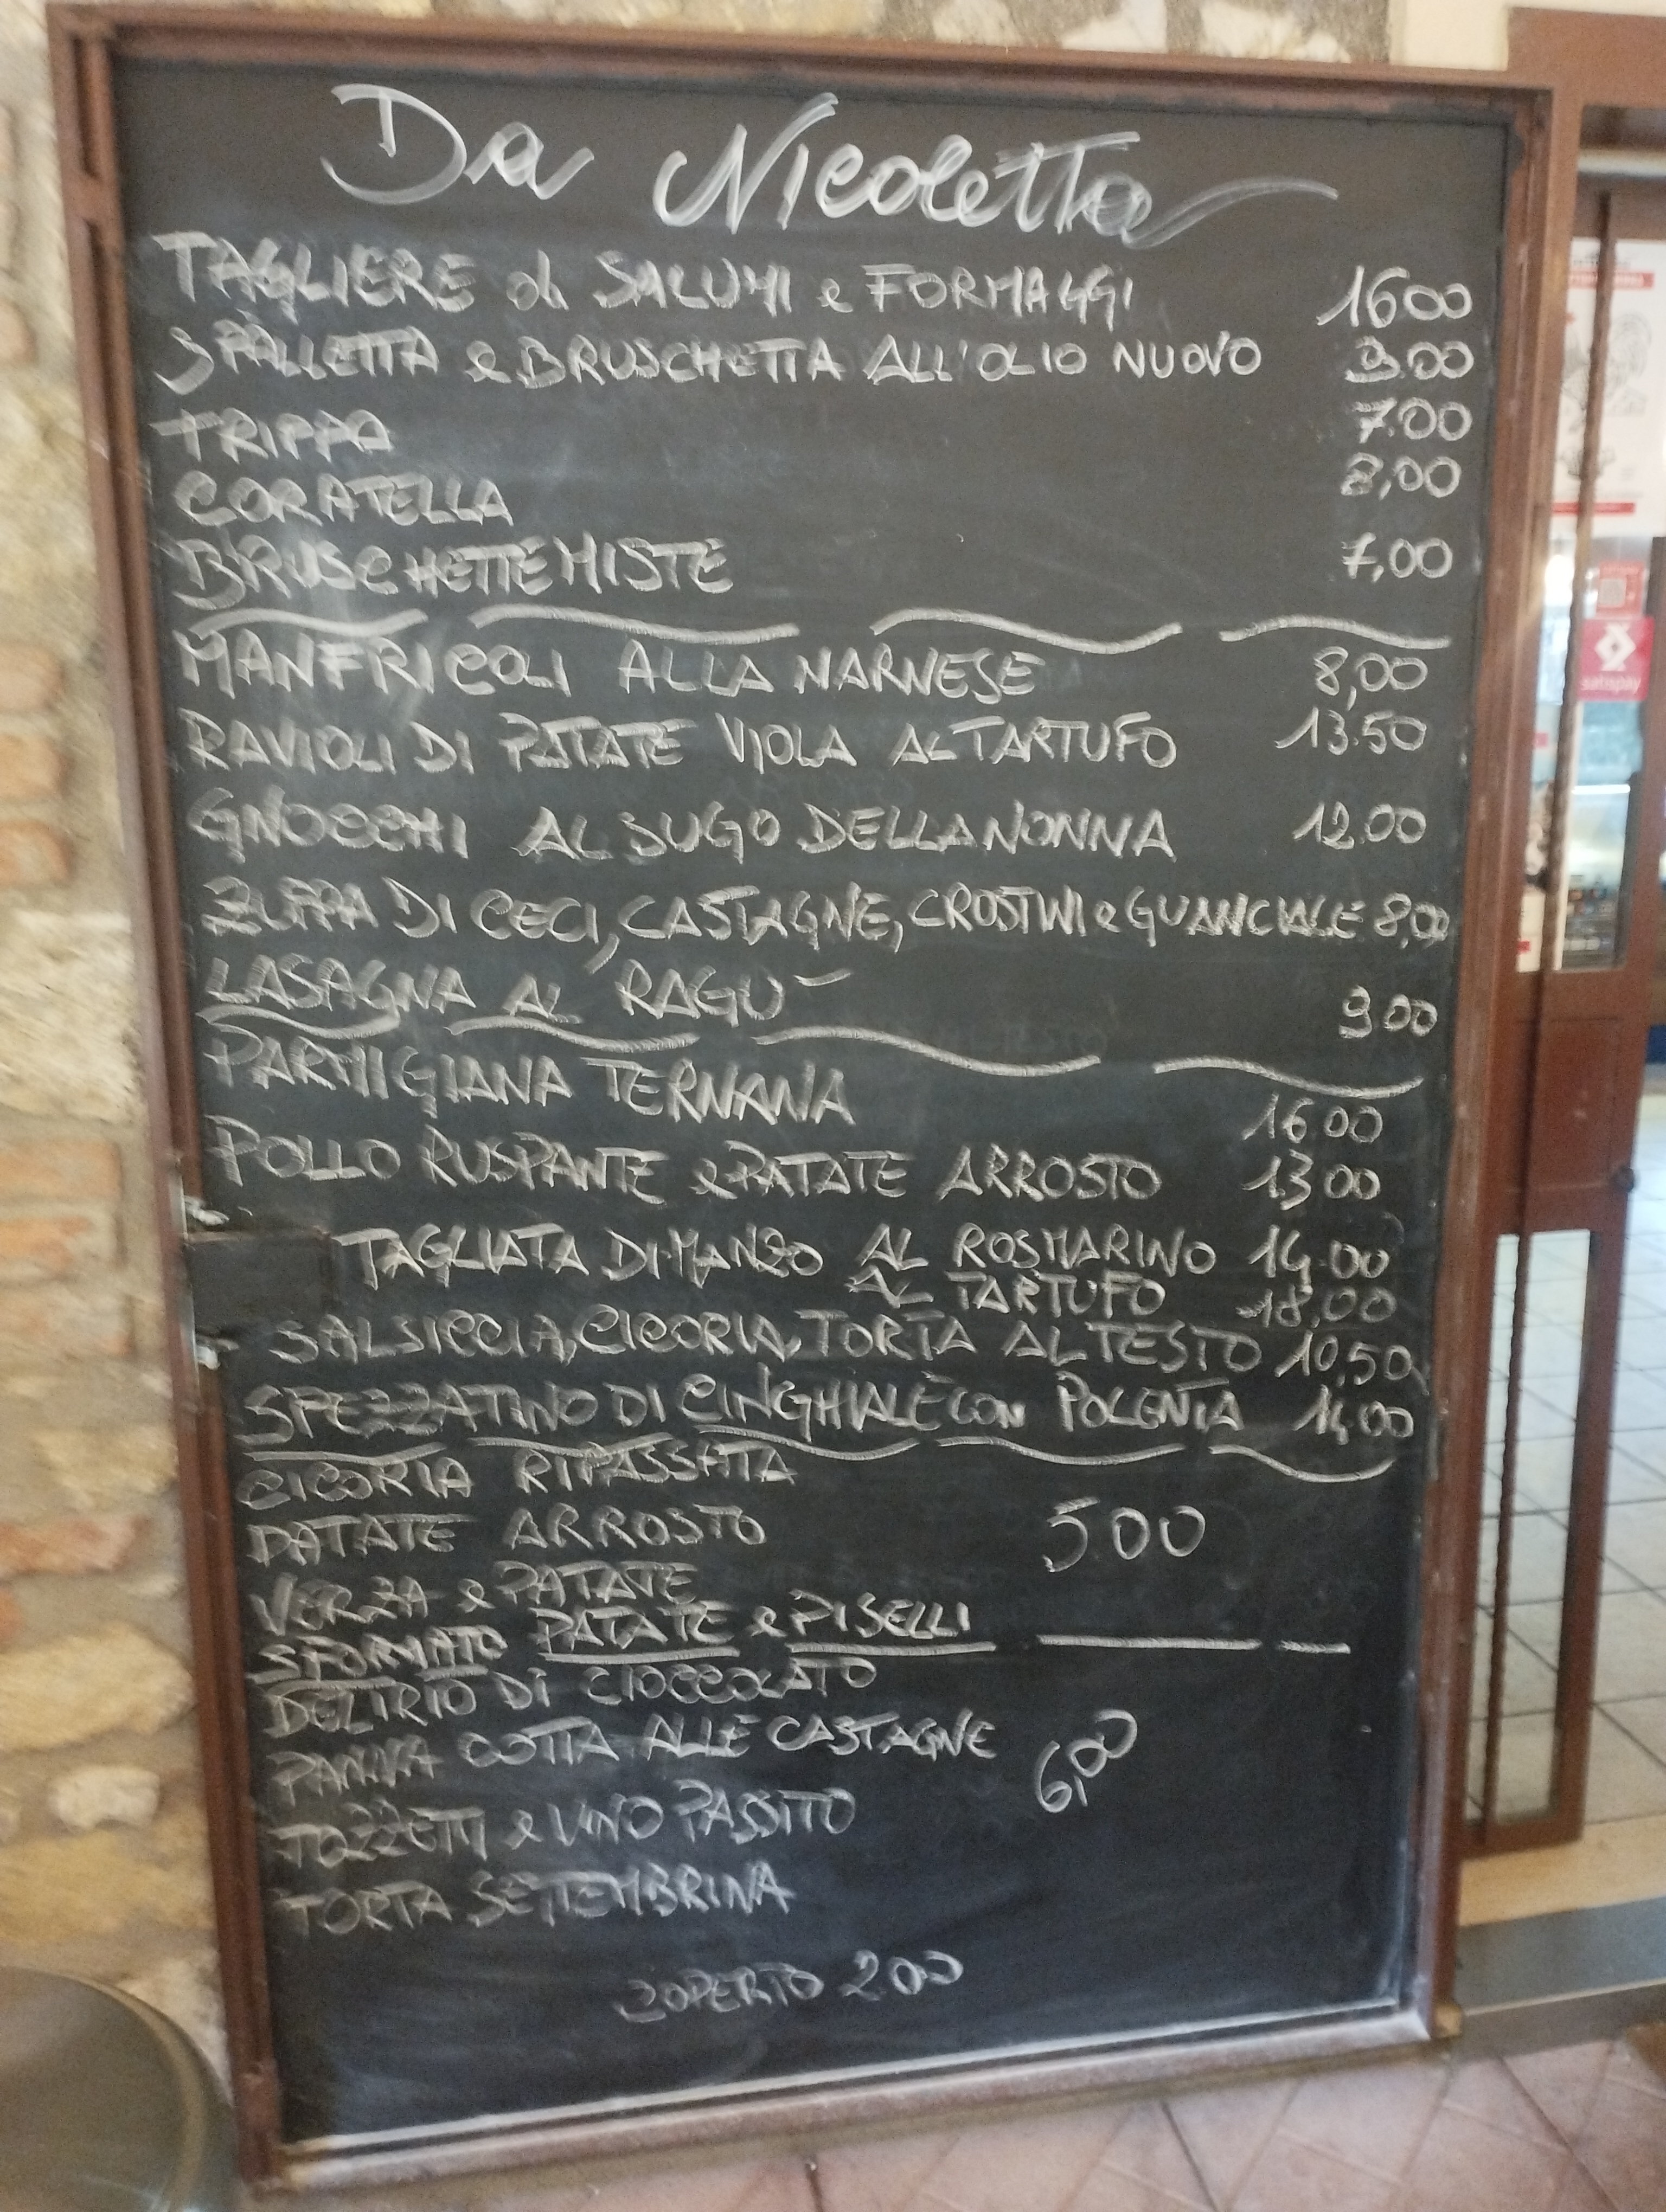 Da Nicoletta
TAGLIERE di SALUMI e FORMAGGI 1600
SPALLETTA e BRUSCHETTA ALL'OLIO NUOVO 9.00
TRIPPA 7.00
CORATELLA 8,00
BRUSCHETTE MISTE 7,00
MANFRICOLI ALLA NARNESE 8,00
RAVIOLI DI PATATE VIOLA AL TARTUFO 13.50
GNOCCHI AL SUGO DELLA NONNA 12.00
ZUPPA DI CECI, CASTAGNE, CROSTINI e GUANCIALE 8,00
LASAGNA AL RAGU' 900
PARMIGIANA TERNANA 1600
POLLO RUSPANTE e PATATE ARROSTO 1300
TAGLIATA DI MANZO AL ROSMARINO 14.00
AL TARTUFO 18,00
SALSICCIA, CICORIA, TORTA AL TESTO 10,50
SPEZZATINO DI CINGHIALE CON POLENTA 14,00
CICORIA RIPASSATA
PATATE ARROSTO 500
VERZA e PATATE
SFORMATO PATATE e PISELLI
DELIRIO DI CIOCCOLATO
PANNA COTTA ALLE CASTAGNE 6,00
TOZZETTI e VINO PASSITO
TORTA SETTEMBRINA
COPERTO 200
satispay